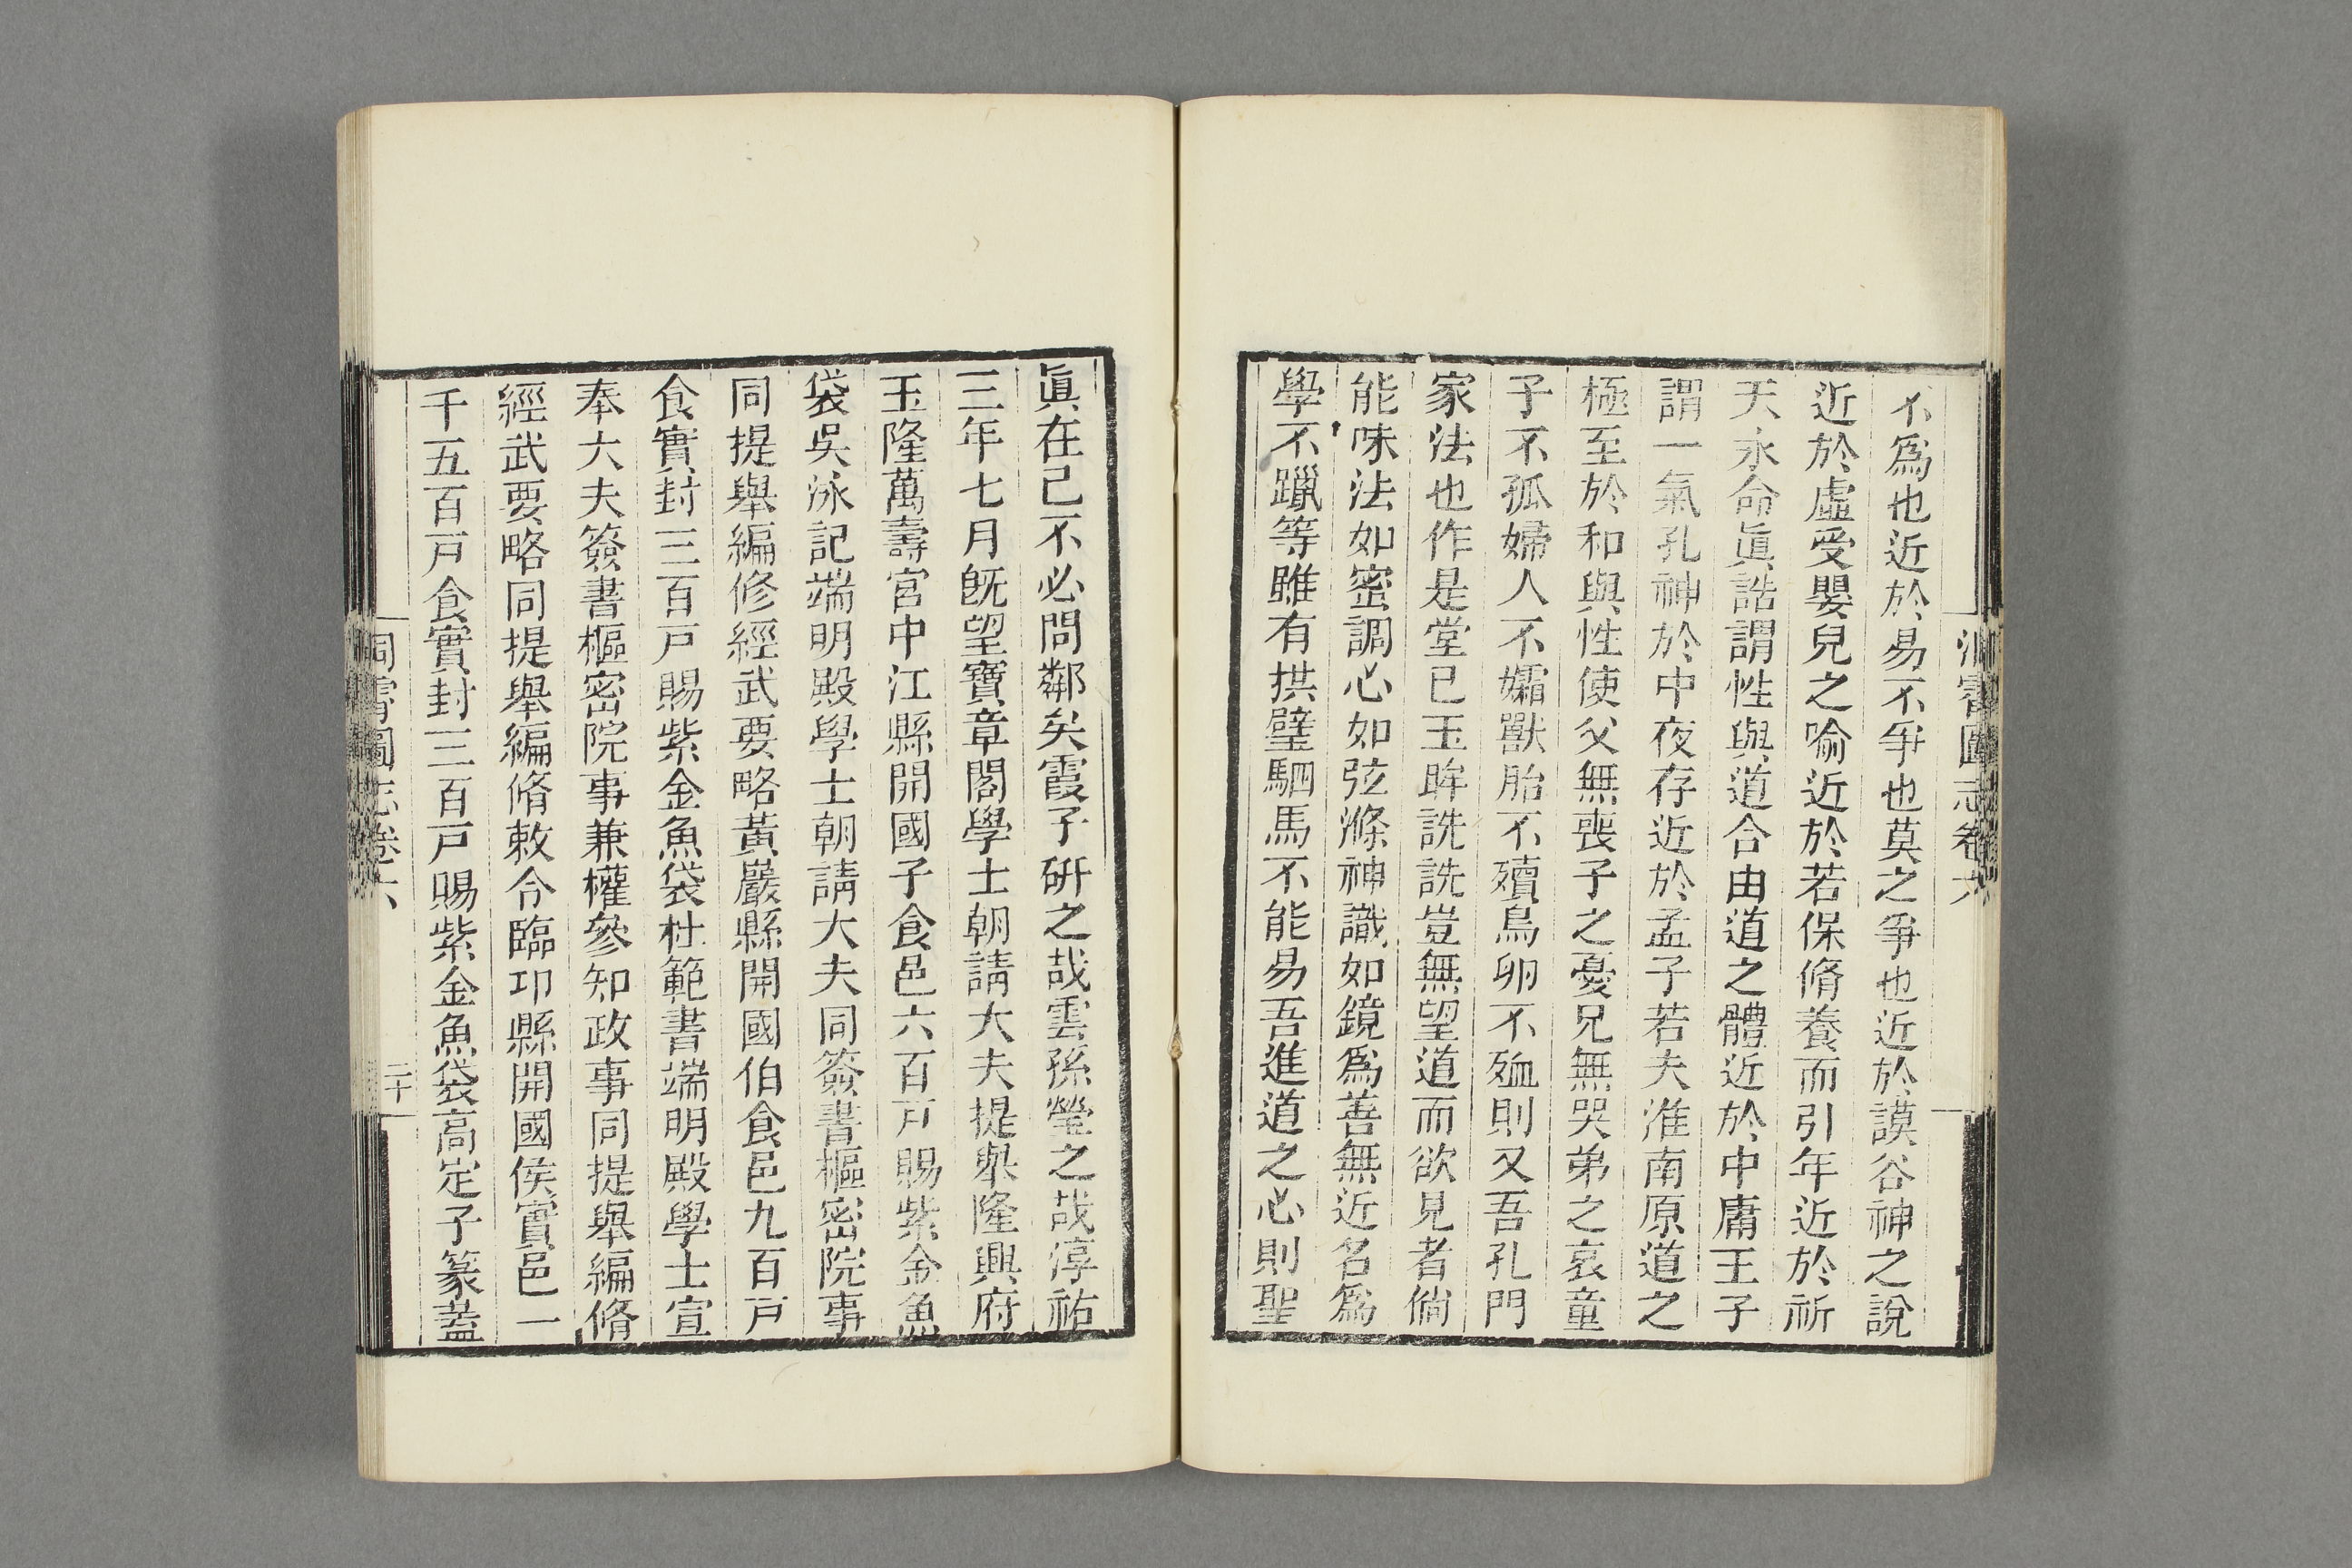 不爲也近於易不爭也莫之爭也近於謨谷神之說
近於虛受嬰兒之喻近於若保脩養而引年近於祈
天永命眞誥謂性與道合由道之體近於中庸王子
謂一氣孔神於中夜存近於孟子若夫淮南原道之
極至於和與性使父無喪子之憂兄無哭弟之哀童
子不孤婦人不孀獸胎不殰鳥卵不殈則又吾孔門
家法也作是堂已玉眸詵詵豈無望道而欲見者倘
能味法如蜜調心如弦滌神識如鏡爲善無近名爲
學不躐等雖有拱璧駟馬不能易吾進道之心則聖
洞霄圖志卷六
眞在己不必問鄰矣霞子硏之哉雲孫瑩之哉淳祐
三年七月旣望寶章閣學士朝請大夫提舉隆興府
玉隆萬壽宮中江縣開國子食邑六百戸賜紫金魚
袋吳泳記端明殿學士朝請大夫同簽書樞密院事
同提舉編修經武要略黃巖縣開國伯食邑九百戸
食實封三百戸賜紫金魚袋杜範書端明殿學士宣
奉大夫簽書樞密院事兼權參知政事同提舉編脩
經武要略同提舉編脩敕令臨邛縣開國侯實邑一
千五百戸食實封三百戸賜紫金魚袋高定子篆蓋
洞霄圖志卷六
二十